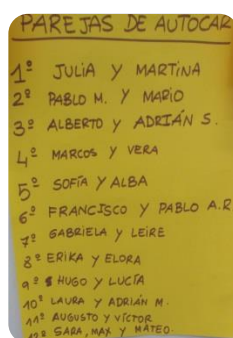 PAREJAS DE AUTOCAR
1º JULIA Y MARTINA
2º PABLO M. Y MARIO
3º ALBERTO Y ADRIÁN S.
4º MARCOS Y VERA
5º SOFÍA Y ALBA
6º FRANCISCO Y PABLO A.R
7º GABRIELA Y LEIRE
8º ERIKA Y ELORA
9º HUGO Y LUCÍA
10º LAURA Y ADRIÁN M.
11º AUGUSTO Y VÍCTOR
12º SARA, MAX Y MATEO.